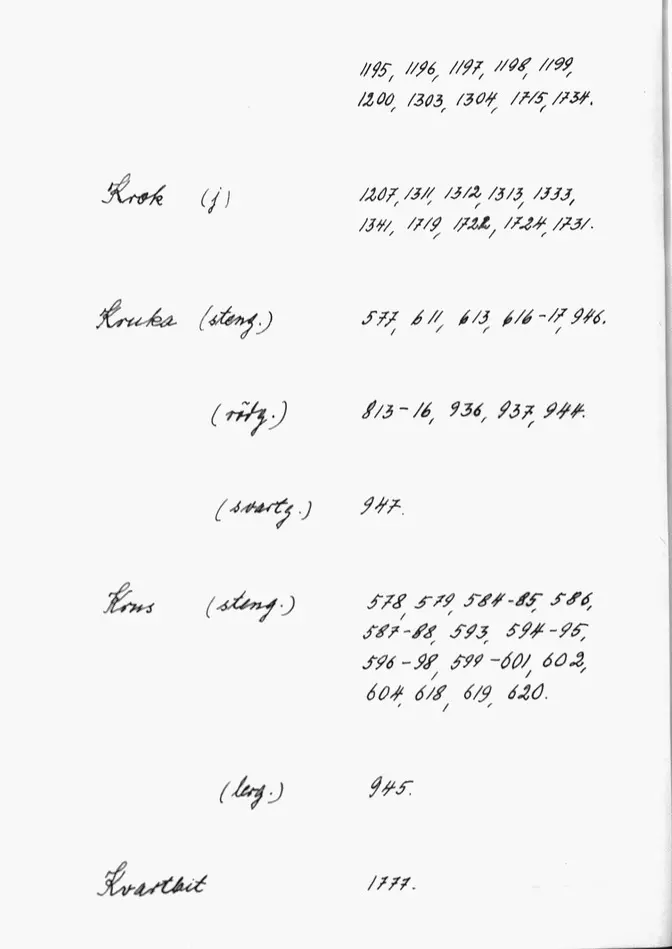 1195, 1196, 1197, 1198, 1199,
1200, 1303, 1304, 1715, 1734.
Krok (j) 1207, 1311, 1312, 1313, 1333,
1341, 1719, 1722, 1724, 1731.
Kruka (steng.) 577, 611, 613, 616-17, 946.
(rödg.) 813-16, 936, 937, 944.
(svartg.) 947.
Krus (steng.) 578, 579, 584-85, 586,
587-88, 593, 594-95,
596-98, 599-601, 602,
604, 618, 619, 620.
(lerg.) 945.
Kvartbit 1777.